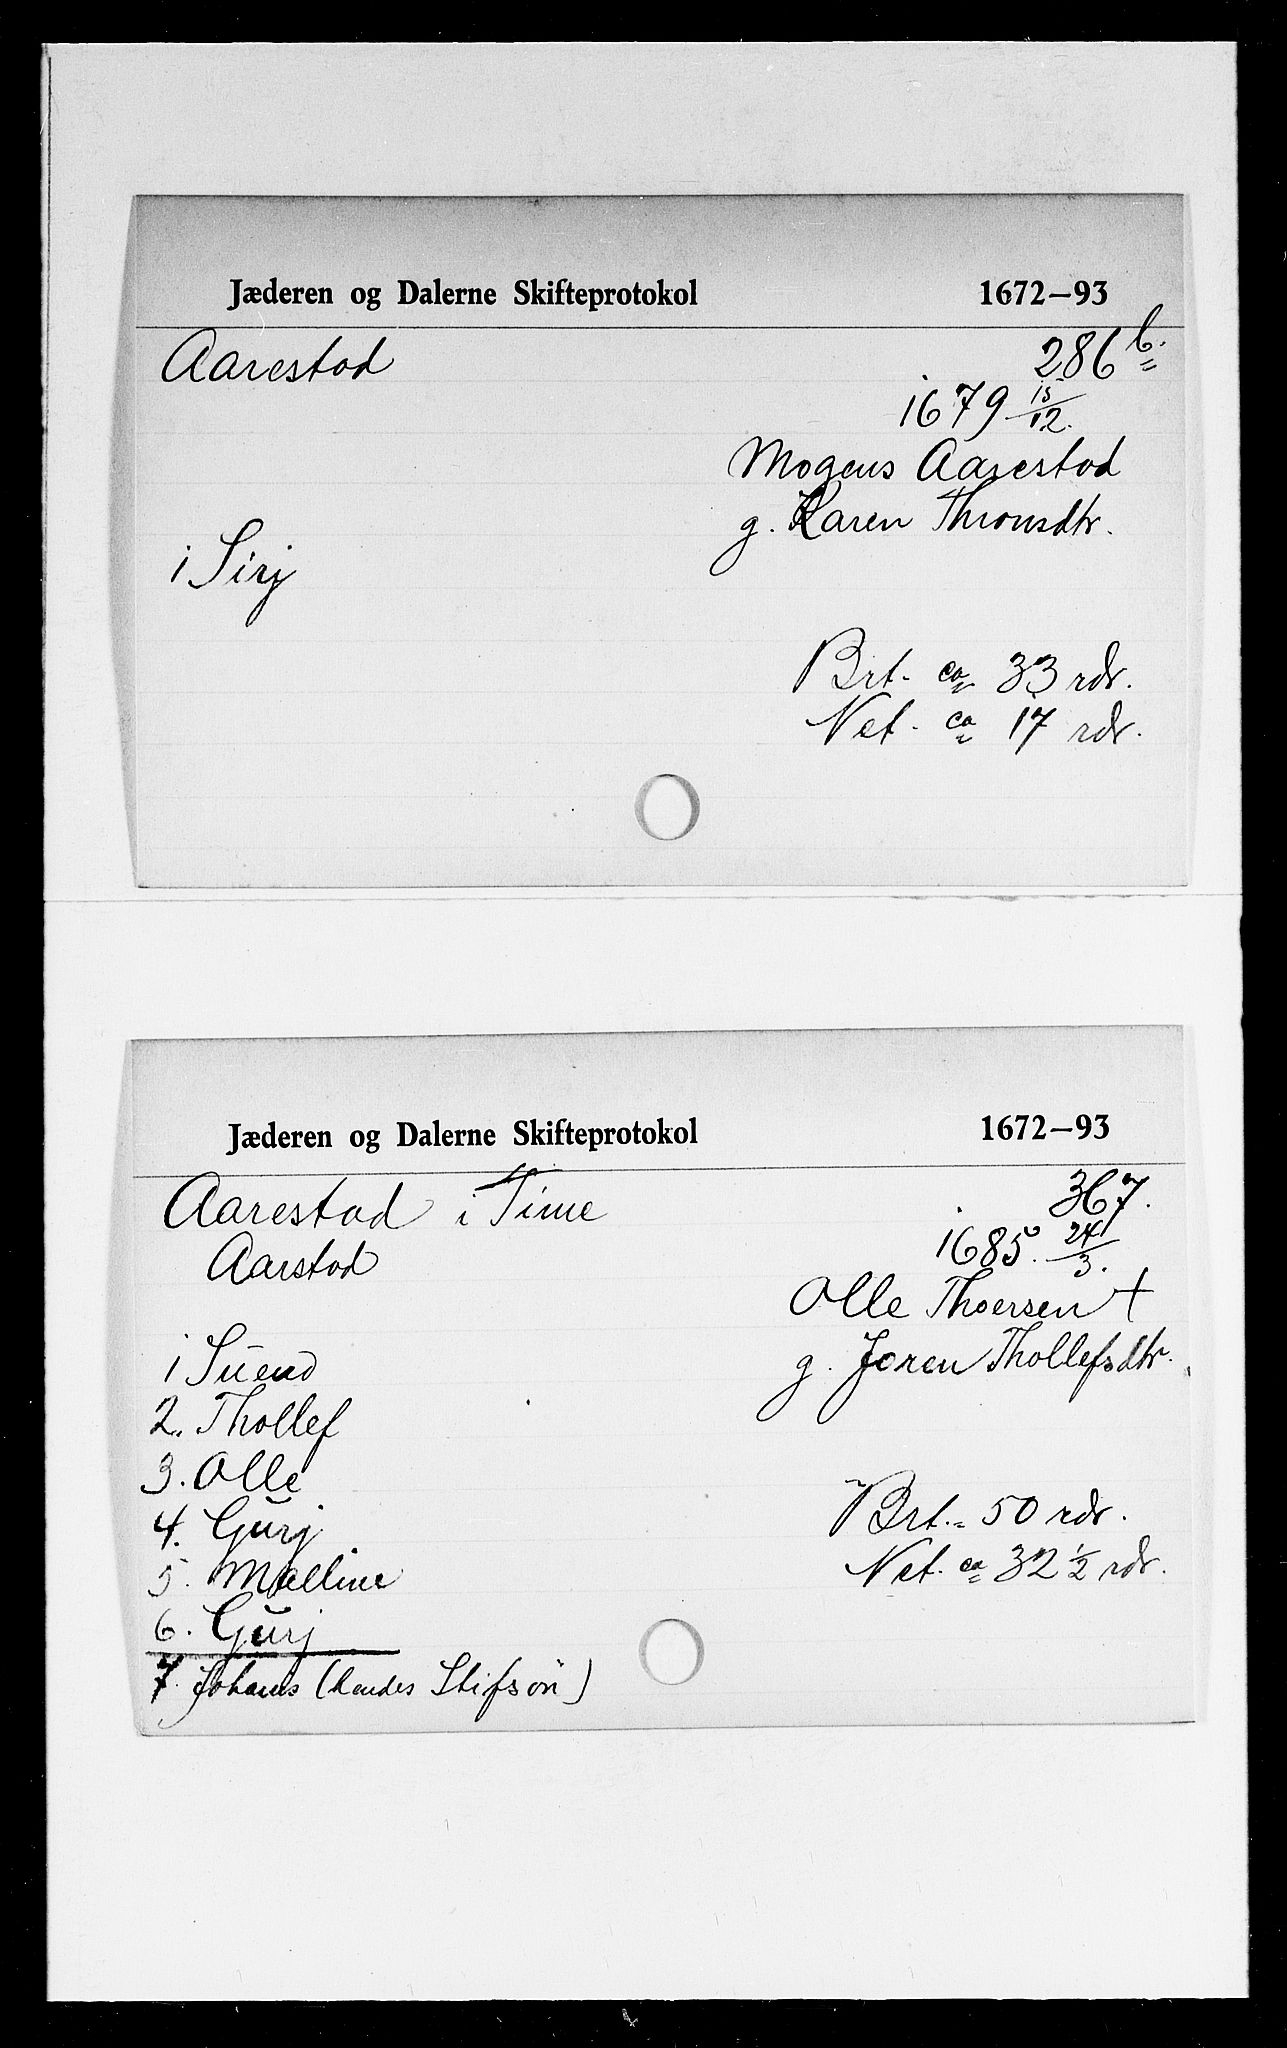 Jæderen og Dalerne Skifteprotokol 1672–93
Aarestad 286 b.
1679 15/12.
Mogens Aarestad
g. Karen Thronsdtr.
1 Sirj
Brt. ca 33 rdr.
Net. ca 17 rdr.
Jæderen og Dalerne Skifteprotokol 1672–93
Aarestad i Time 367.
Aarstad 1685. 24/3.
Olle Thoersen +
1 Suend g. Joren Thollefsdtr.
2. Thollef
3. Olle
4. Gurj Brt. 50 rdr.
5. Malline Net. ca 32 1/2 rdr.
6. Gurj
7. Johans (hendes Stifsøn)